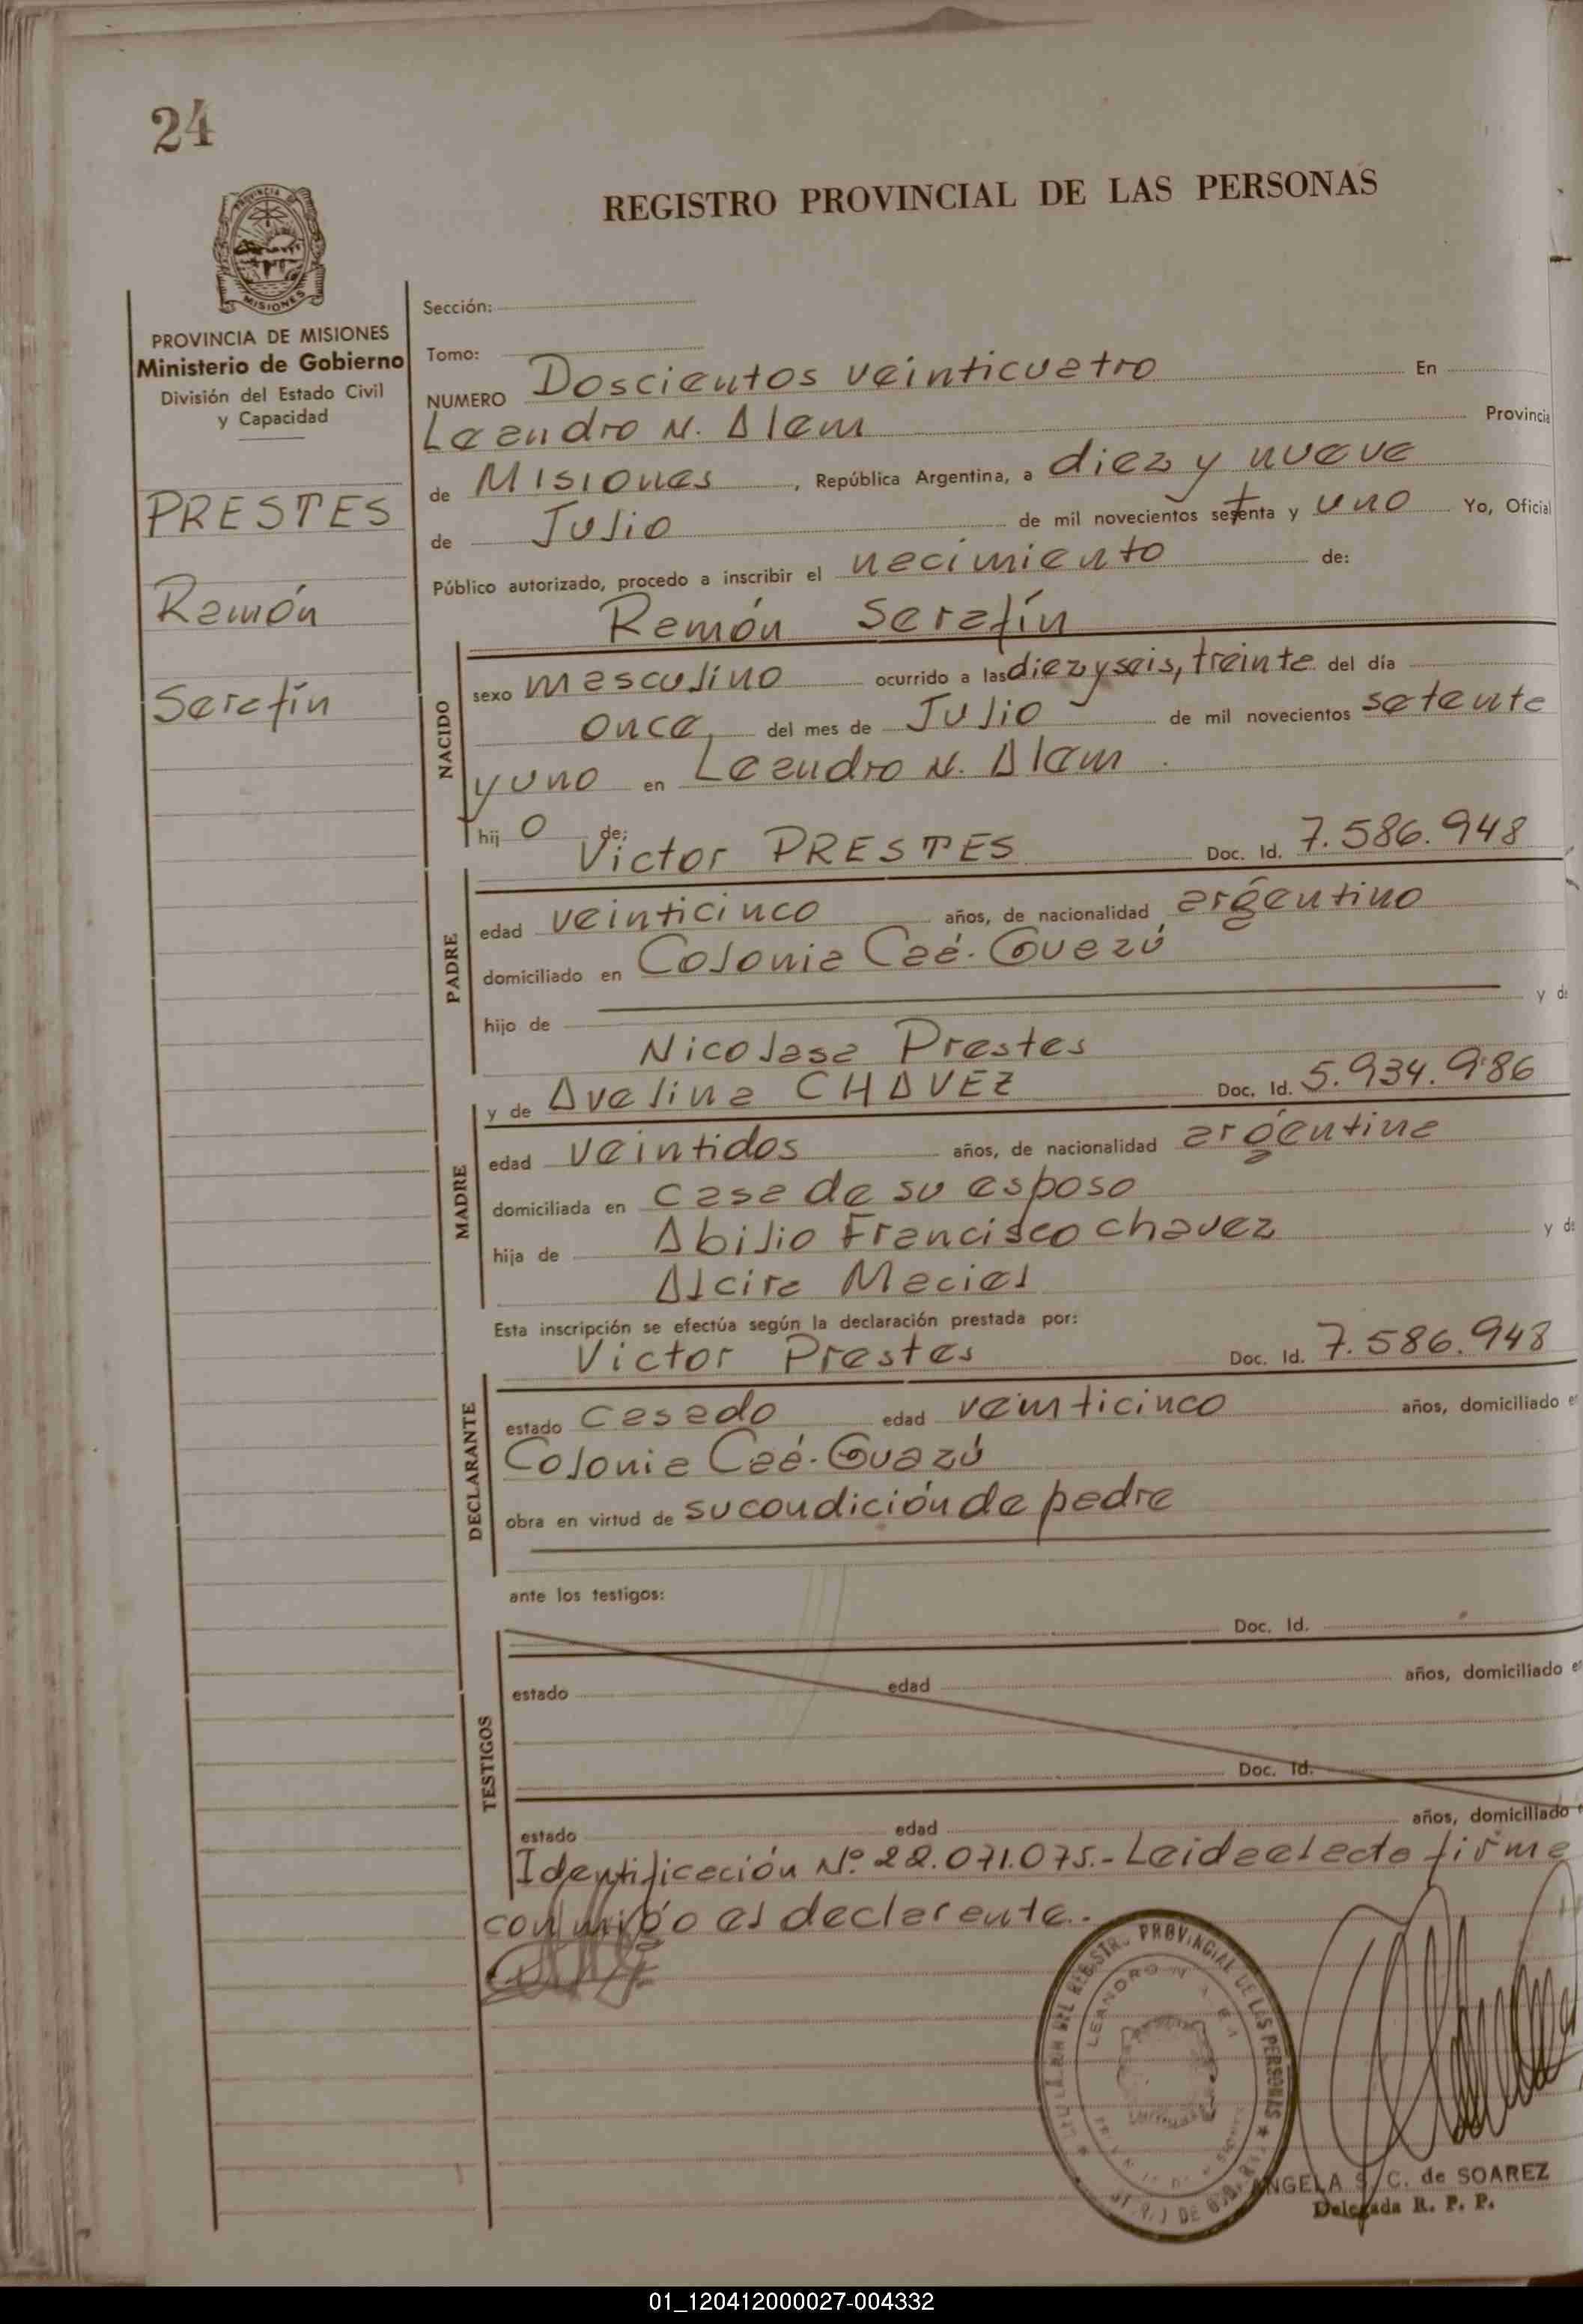 24
REGISTRO PROVINCIAL DE LAS PERSONAS
MISIONES
PROVINCIA DE MISIONES
Ministerio de Gobierno
División del Estado Civil
y Capacidad
PRESTES
Ramón
Serafín
Sección:
Tomo:
NUMERO Doscientos veinticuatro En
Leandro N. Alem Provincia
de Misiones, República Argentina, a diez y nueve
de Julio de mil novecientos setenta y uno Yo, Oficial
Público autorizado, procedo a inscribir el nacimiento de:
Ramón Serafín
NACIDO
sexo masculino ocurrido a las diez y seis, treinta del día
once, del mes de Julio de mil novecientos setenta
y uno en Leandro N. Alem.
hij o de:
Victor PRESTES Doc. Id. 7.586.948
PADRE
edad veinticinco años, de nacionalidad argentino
domiciliado en Colonia Caá-Guazú
hijo de y de
Nicolasa Prestes
y de Avelina CHAVEZ Doc. Id. 5.934.986
MADRE
edad veintidos años, de nacionalidad argentina
domiciliada en casa de su esposo
hija de Abilio Francisco Chavez y de
Alcira Maciel
Esta inscripción se efectúa según la declaración prestada por:
Victor Prestes Doc. Id. 7.586.948
DECLARANTE
estado casado edad veinticinco años, domiciliado en
Colonia Caá-Guazú
obra en virtud de su condición de padre
ante los testigos:
Doc. Id.
TESTIGOS
estado edad años, domiciliado en
Doc. Id.
estado edad años, domiciliado
Identificación Nº 22.071.075.- Leida el acta firma
conmigo el declarante.-
REGISTRO PROVINCIAL DE LAS PERSONAS
LEANDRO N. ALEM
ANGELA S. C. de SOAREZ
Delegada R. P. P.
01_120412000027-004332